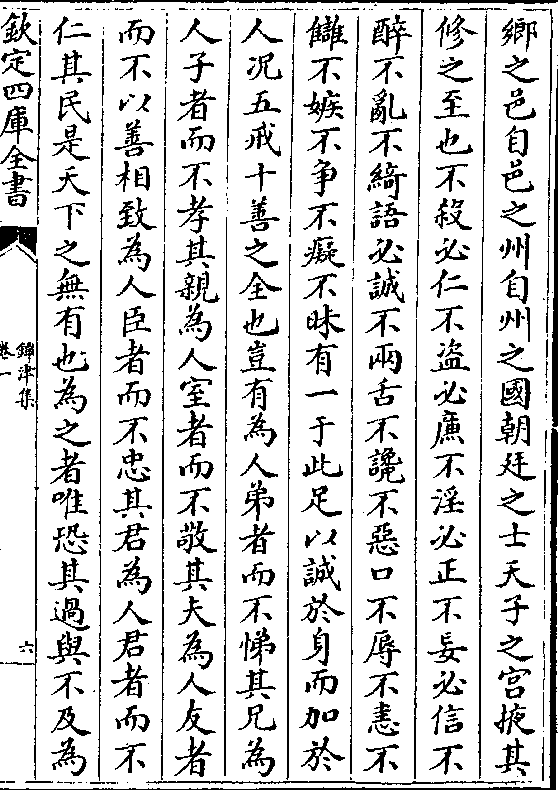 鄉之邑自邑之州自州之國朝廷之士天子之宮掖其
修之至也不殺必仁不盜必廉不淫必正不妄必信不
醉不亂不綺語必誠不兩舌不讒不惡口不辱不恚不
讎不嫉不爭不癡不昧有一于此足以誠於身而加於
人況五戒十善之全也豈有為人弟者而不悌其兄為
人子者而不孝其親為人室者而不敬其夫為人友者
而不以善相致為人臣者而不忠其君為人君者而不
仁其民是天下之無有也為之者唯恐其過與不及為
欽定四庫全書
鐔津集
卷一
六